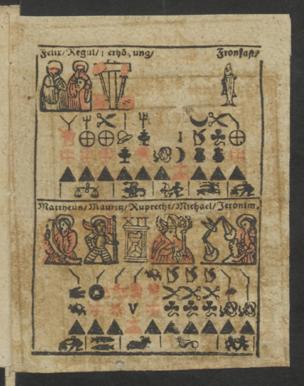 Felix/ Regul/ erhö_ung/ Fronfast/
Mattheus/ Mauritz/ Ruprecht/ Michael/ Jeronim,
XII
V